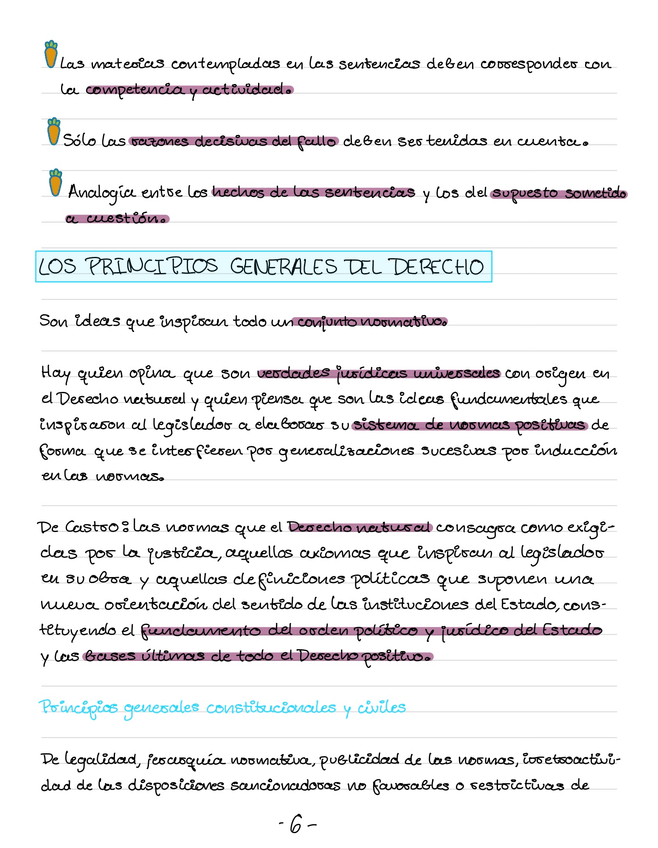 Las materias contempladas en las sentencias deben corresponder con
la competencia y actividad.
Sólo las razones decisivas del fallo deben ser tenidas en cuenta.
Analogía entre los hechos de las sentencias y los del supuesto sometido
a cuestión.
LOS PRINCIPIOS GENERALES DEL DERECHO
Son ideas que inspiran todo un conjunto normativo.
Hay quien opina que son verdades jurídicas universales con origen en
el Derecho natural y quien piensa que son las ideas fundamentales que
inspiraron al legislador a elaborar su sistema de normas positivas de
forma que se interfieren por generalizaciones sucesivas por inducción
en las normas.
De Castro: las normas que el Derecho natural consagra como exigi-
das por la justicia, aquellos axiomas que inspiran al legislador
en su obra y aquellas definiciones políticas que suponen una
nueva orientación del sentido de las instituciones del Estado, cons-
tituyendo el fundamento del orden político y jurídico del Estado
y las bases últimas de todo el Derecho positivo.
Principios generales constitucionales y civiles
De legalidad, jerarquía normativa, publicidad de las normas, irretroactivi-
dad de las disposiciones sancionadoras no favorables o restrictivas de
-6-